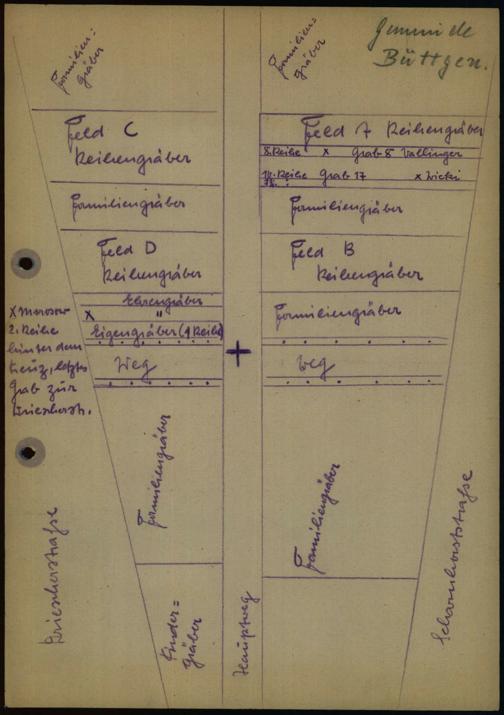 Gemeinde
Büttgen.
Familien=
gräber
Familien=
gräber
Feld C
Reihengräber
Familiengräber
Feld D
Reihengräber
Ehrengräber
X "
Eigengräber (1 Reihe)
Weg
Familiengräber
Kinder=
gräber
2. Reihe
hinter dem
Kreuz, letztes
Grab zur
Driescherstr.
Driescherstraße
Hauptweg
Feld A Reihengräber
8. Reihe x Grab 8 Vallinger
Reihe Grab 17 x
Familiengräber
Feld B
Reihengräber
Familiengräber
Weg
Familiengräber
Scharnhorststraße